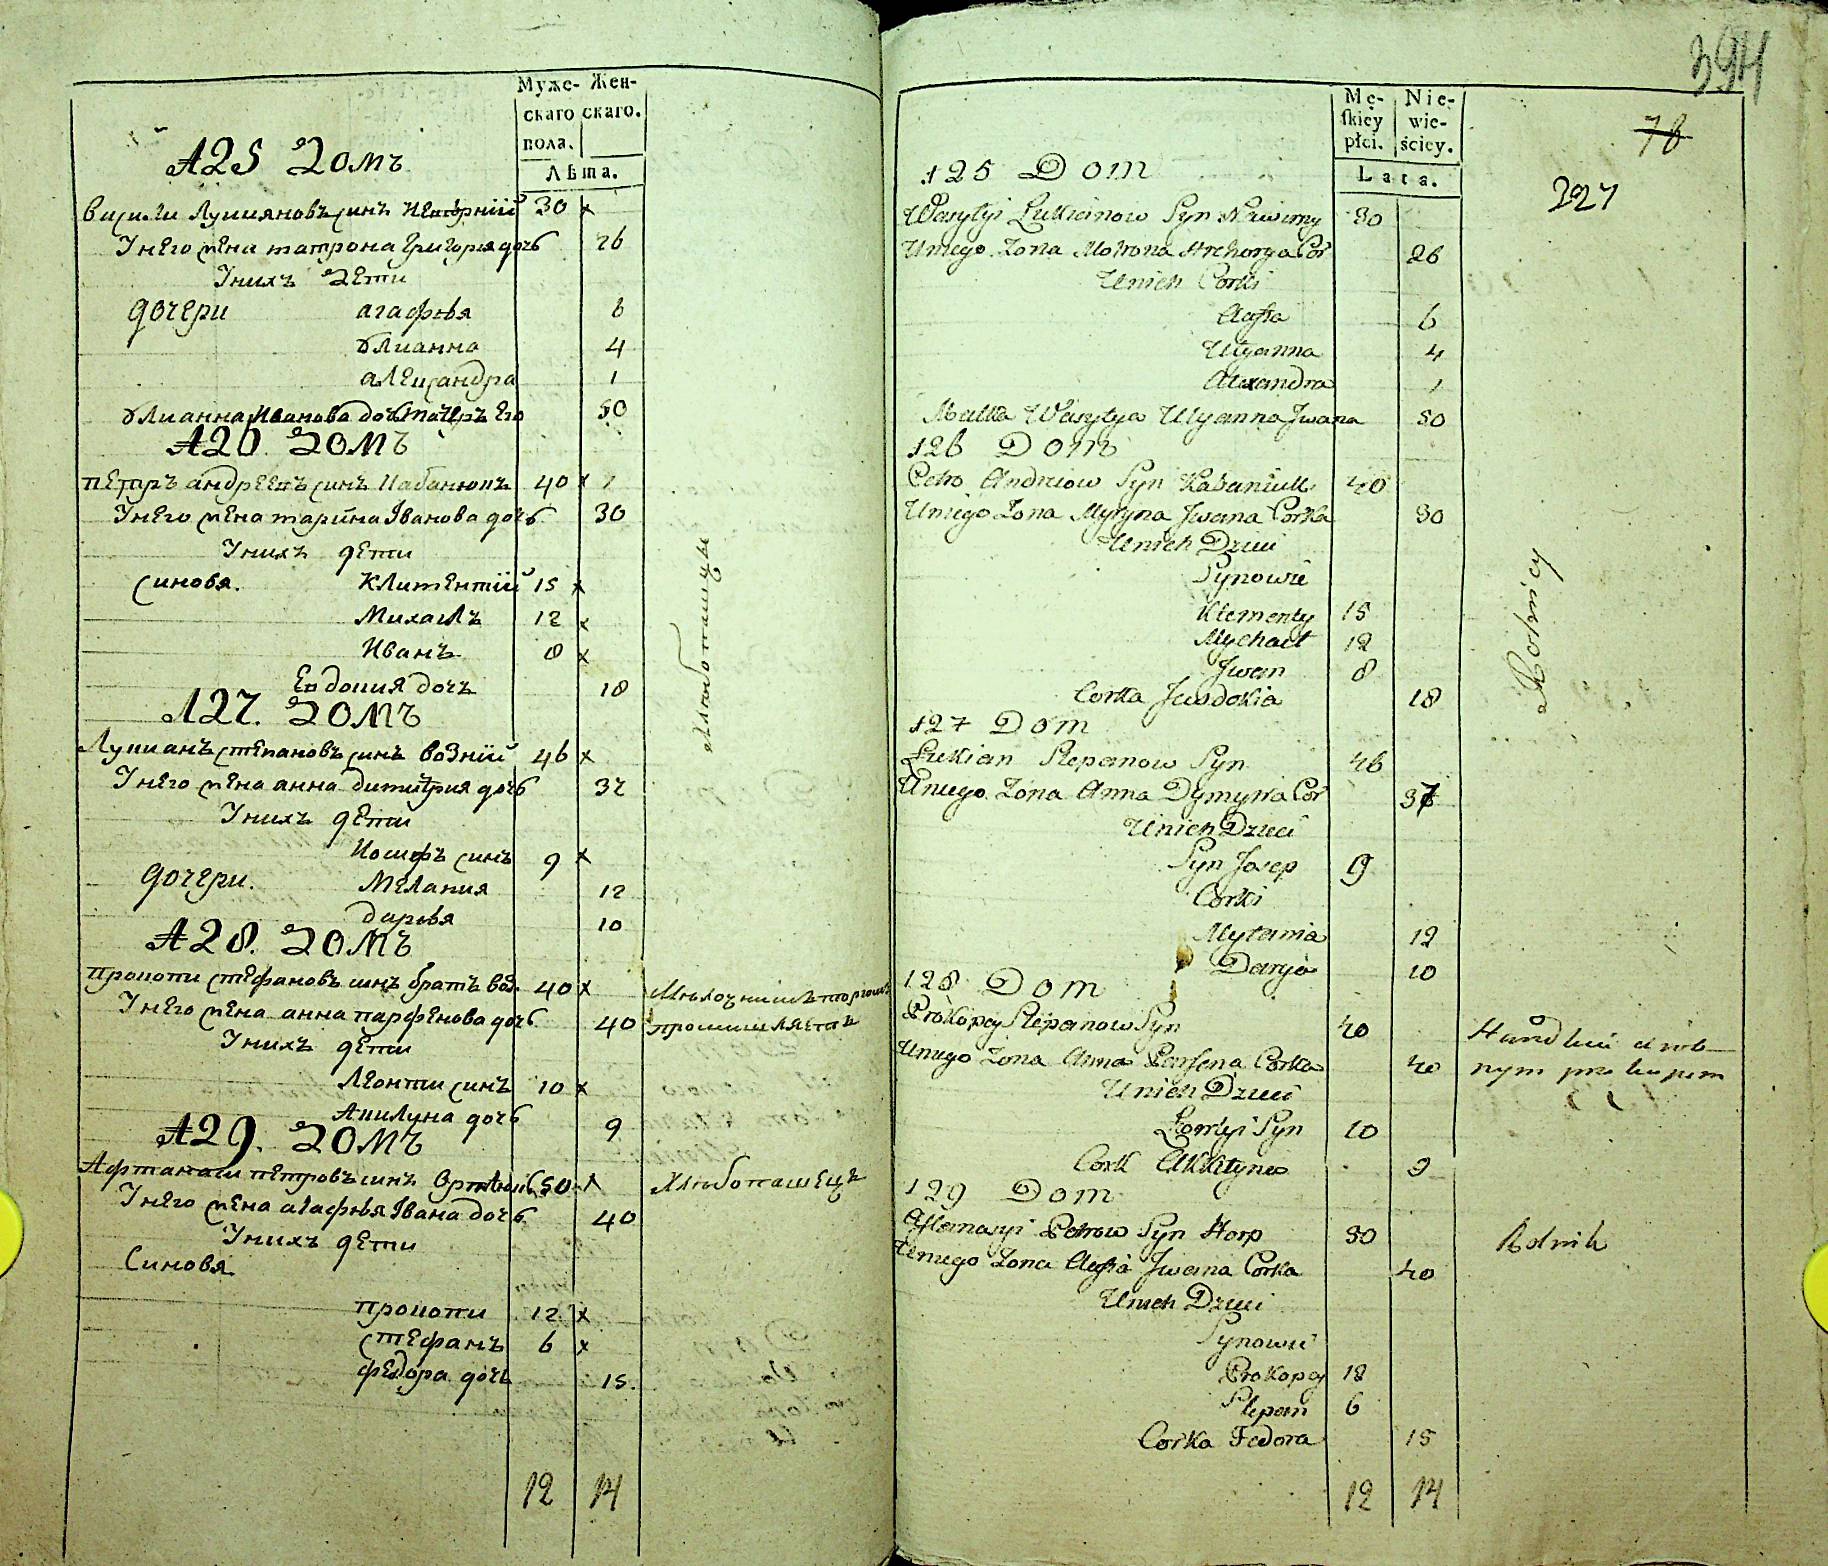 Муже- Жен-
скаго скаго.
пола.
Лѣта.
125 Домъ
Василь Лукияновъ синъ 30 х
У него жена матрона Григория дочь 26
У них дети
дочери агафья 6
Улианна 4
александра 1
Улианна Иванова дочь матеръ Его 50
126 Домъ
петръ андреевъ синъ Кабанюкъ 40 х
У него жена марина Іванова дочь 30
У нихъ дети
синовя. Климентий 15 х
Михаилъ 12 х
Иванъ 8 х
Евдокия дочъ 18
127. Домъ
Лукианъ степановъ синъ возний 46 х
У него жена анна димитрия дочь 32
У нихъ дети
Иосифъ синъ 9 х
дочери. Мелания 12
дарья 10
Хлѣбопашцы
128. Домъ
прокопи стефановъ синъ братъ воз. 40 х
У него жена анна парфенова дочь 40
У нихъ дети
Леонти синъ 10 х
Акилуна дочь 9
Мѣлочнимъ торгомъ
промишляетъ
129. Домъ
Афтанаси петровъ синъ 50 х Хлѣбопашецъ
У него жена агафья Івана дочь 40
У нихъ дети
Синовя
прокопи 12 х
стефанъ 6 х
федора дочь 15.
12 14
394
Mę- Nie-
skiey wie-
płci. ściey.
Lata.
78
227
125 Dom
Wasylyi Lukianow Syn 30
Uniego Zona Motrona Hrehorya Cor 26
Unich Corki
Agfia 6
Ulyanna 4
Alexandra 1
Matka Wasylya Ulyanna Jwana 50
126 Dom
Petro Andriow Syn Kabaniuk 40
Uniego Zona Myryna Jwana Corka 30
Unich Dzieci
Synowie
Klementy 15
Mychaił 12
Jwan 8
Corka Jewdokia 18
Rolnicy
127 Dom
Lukian Stepanow Syn 46
Uniego Zona Anna Dymytra Cor 37
Unich Dzieci
Syn Josep 9
Corki
Mylania 12
Darya 10
128 Dom
Prokopy Stepanow Syn 40
Uniego Zona Anna Parfena Corka 40
Unich Dzieci
Leontyi Syn 10
Cork Akilyna 9
Handlui drob-
nym
129 Dom
Aftanasyi Petrow Syn Horp 50 Rolnik
Uniego Zona Agfia Jwana Corka 40
Unich Dzieci
Synowie
Prokopy 12
Stepan 6
Corka Fedora 15
12 14